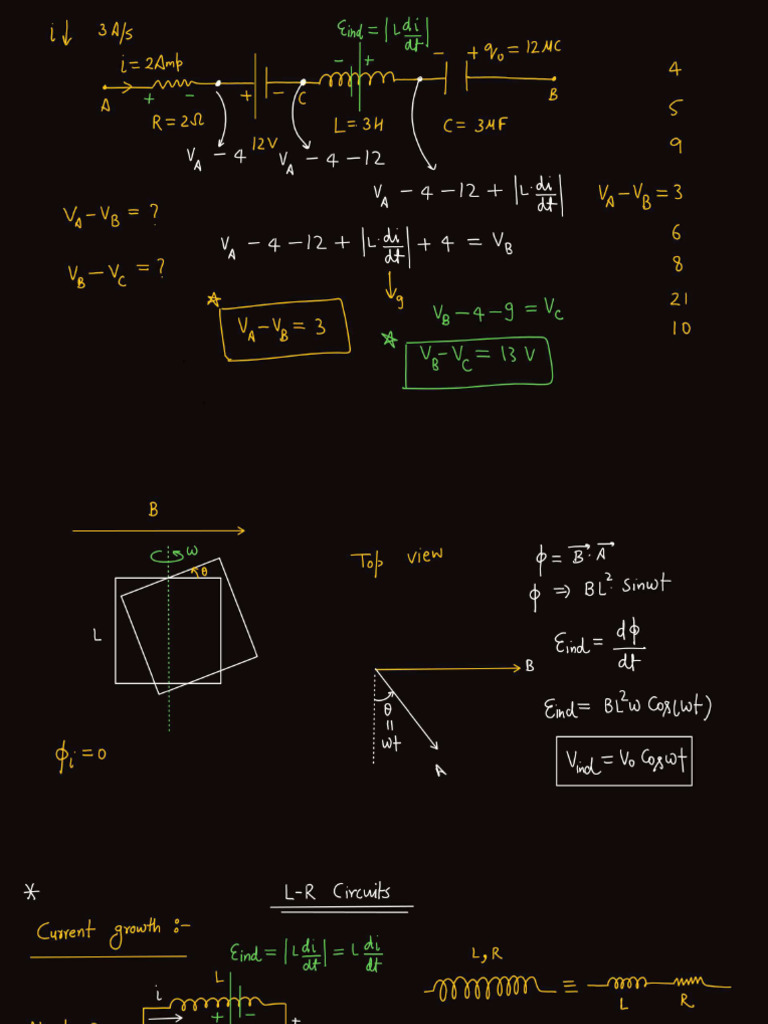 i↓ 3 A/s
Ɛind = |L di/dt|
i = 2Amp
+ -
+ -
- +
- + q₀ = 12 μC
A
C
B
R = 2Ω
12V
L = 3H
C = 3μF
V_A - 4
V_A - 4 - 12
V_A - 4 - 12 + |L·di/dt|
V_A - V_B = ?
V_A - 4 - 12 + |L·di/dt| + 4 = V_B
V_B - V_C = ?
↓9
☆
V_A - V_B = 3
V_B - 4 - 9 = V_C
☆
V_B - V_C = 13 V
4
5
9
V_A - V_B = 3
6
8
21
10
B
ω
θ
L
ϕi = 0
Top view
B
θ
=
ωt
A
ϕ = B⃗·A⃗
ϕ ⇒ BL²·Sinωt
Ɛind = dϕ/dt
Ɛind = BL²ω Cos(ωt)
Vind = V₀ Cosωt
*
L-R Circuits
Current growth :-
Ɛind = |L di/dt| = L di/dt
L
i
+ -
L, R
≡
L R